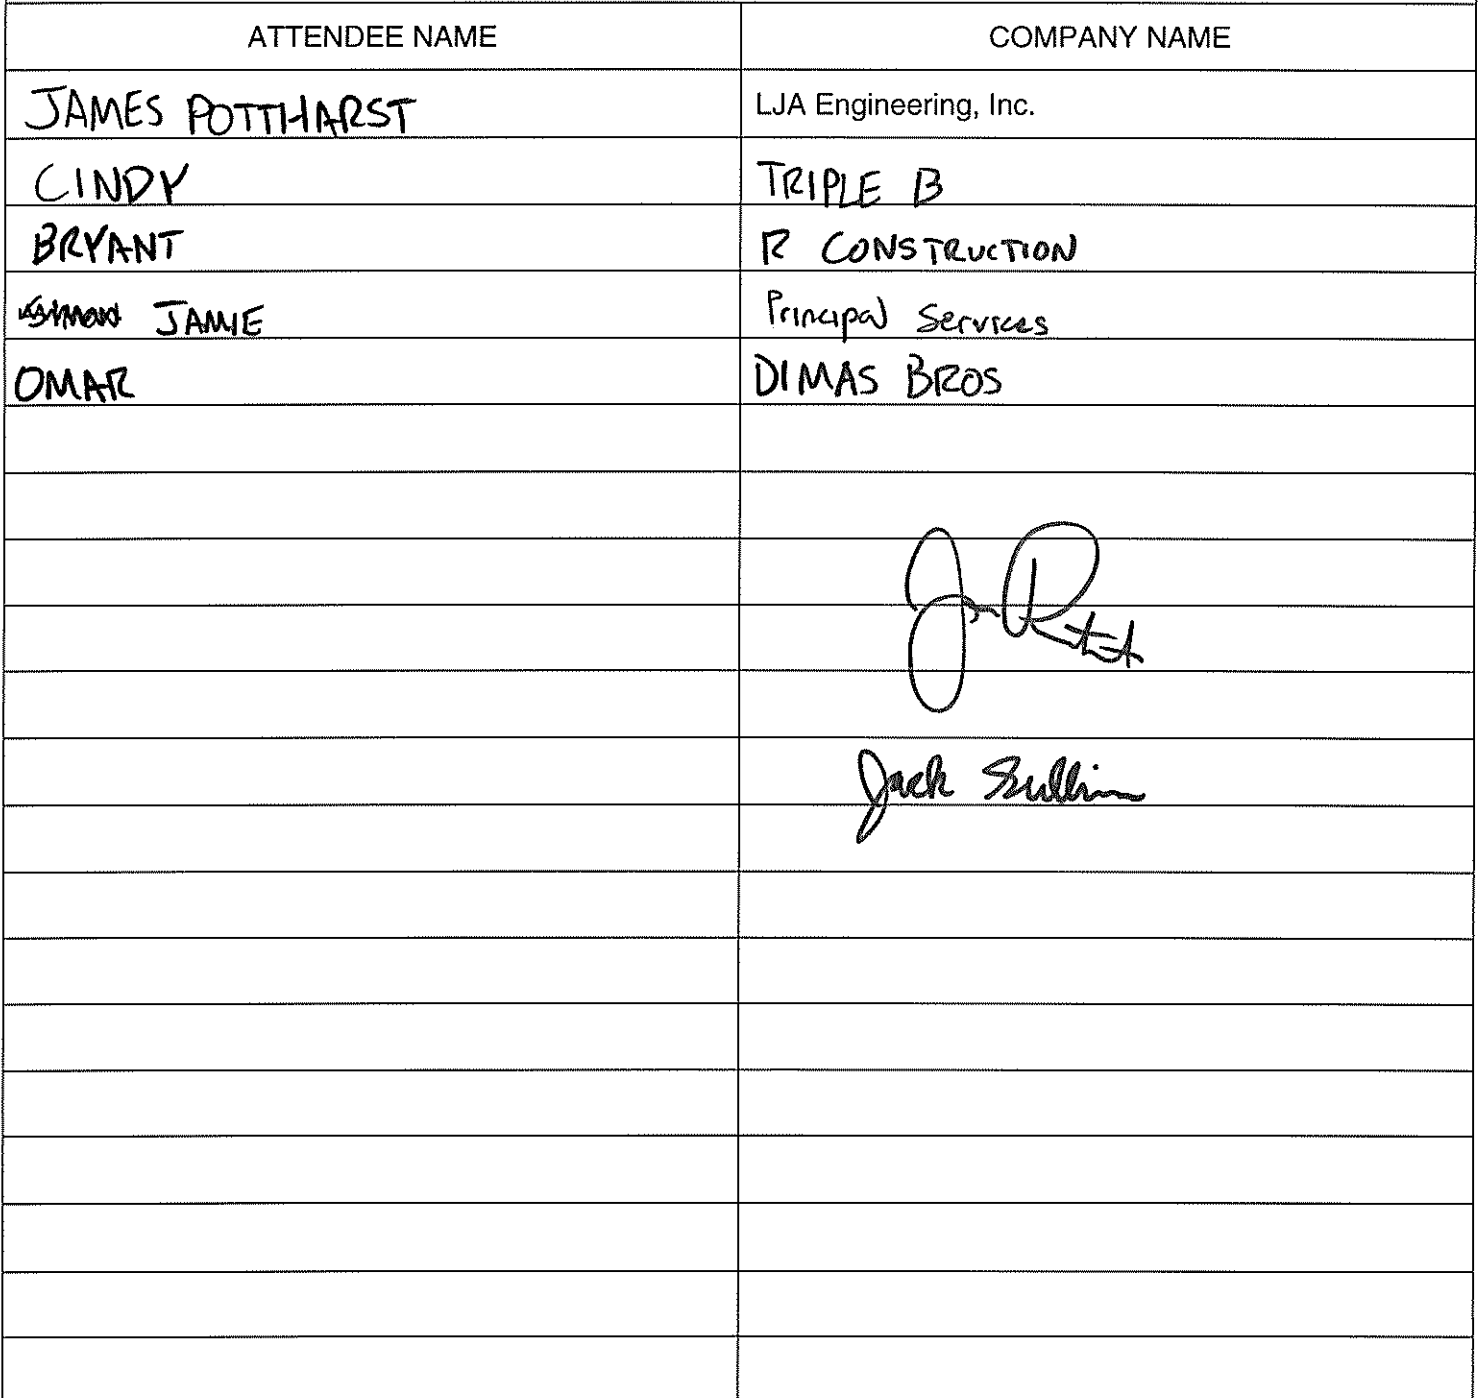 ATTENDEE NAME COMPANY NAME
JAMES POTTHARST LJA Engineering, Inc.
CINDY TRIPLE B
BRYANT R CONSTRUCTION
JAMIE Principal Services
OMAR DIMAS BROS
Jack Sullivan